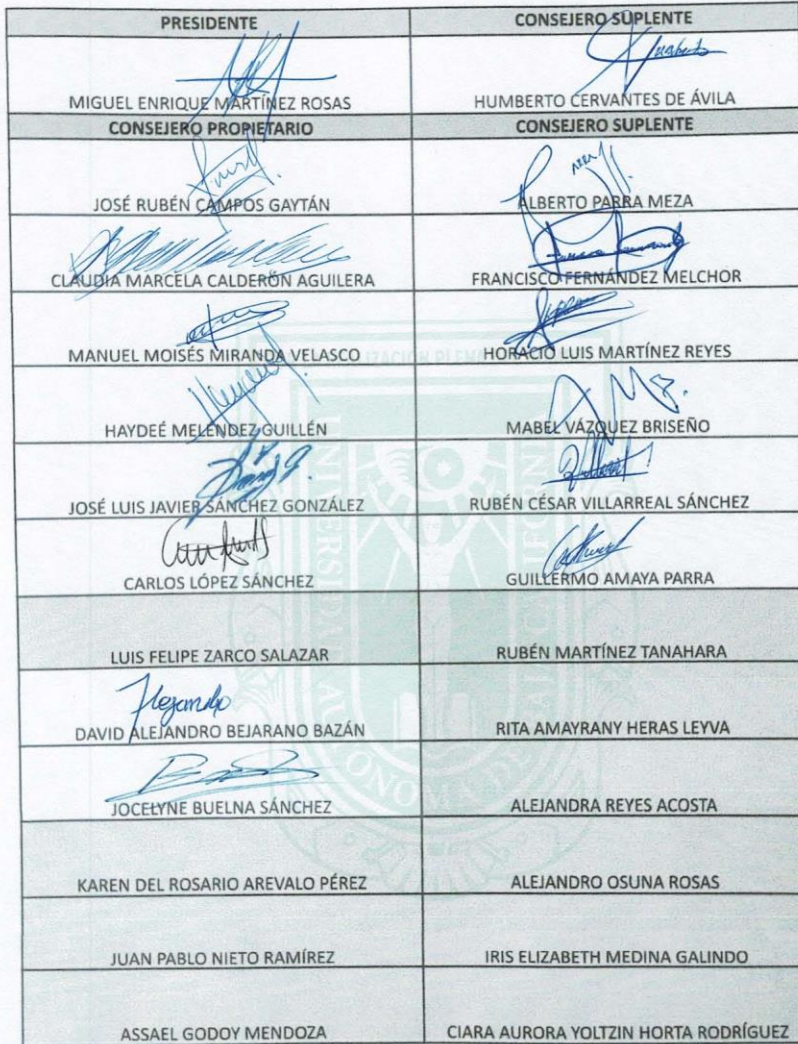 PRESIDENTE CONSEJERO SUPLENTE
MIGUEL ENRIQUE MARTÍNEZ ROSAS HUMBERTO CERVANTES DE ÁVILA
CONSEJERO PROPIETARIO CONSEJERO SUPLENTE
JOSÉ RUBÉN CAMPOS GAYTÁN ALBERTO PARRA MEZA
CLAUDIA MARCELA CALDERÓN AGUILERA FRANCISCO FERNÁNDEZ MELCHOR
MANUEL MOISÉS MIRANDA VELASCO HORACIO LUIS MARTÍNEZ REYES
HAYDEÉ MELÉNDEZ GUILLÉN MABEL VÁZQUEZ BRISEÑO
JOSÉ LUIS JAVIER SÁNCHEZ GONZÁLEZ RUBÉN CÉSAR VILLARREAL SÁNCHEZ
CARLOS LÓPEZ SÁNCHEZ GUILLERMO AMAYA PARRA
LUIS FELIPE ZARCO SALAZAR RUBÉN MARTÍNEZ TANAHARA
Alejandro
DAVID ALEJANDRO BEJARANO BAZÁN RITA AMAYRANY HERAS LEYVA
JOCELYNE BUELNA SÁNCHEZ ALEJANDRA REYES ACOSTA
KAREN DEL ROSARIO AREVALO PÉREZ ALEJANDRO OSUNA ROSAS
JUAN PABLO NIETO RAMÍREZ IRIS ELIZABETH MEDINA GALINDO
ASSAEL GODOY MENDOZA CIARA AURORA YOLTZIN HORTA RODRÍGUEZ
UNIVERSIDAD AUTÓNOMA DE BAJA CALIFORNIA